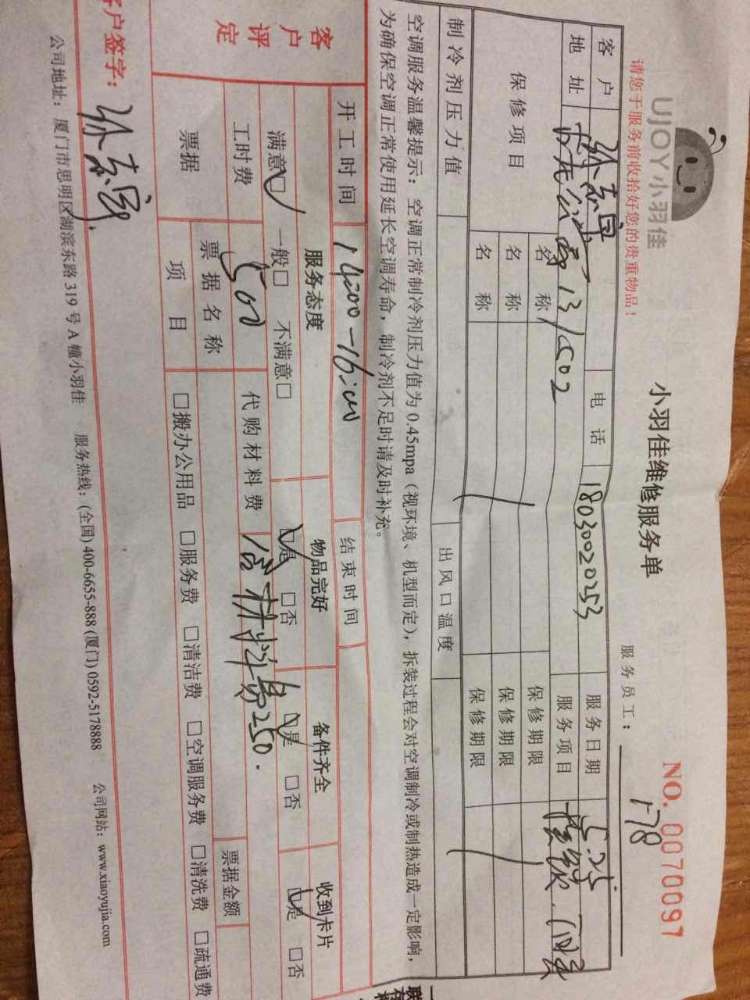 UJOY小羽佳
小羽佳维修服务单
NO. 0070097
请您于服务前收拾好您的贵重物品！
服务员工： 178
客户 电话 18030020253 服务日期 5.25
地址 13/502 服务项目
保修项目 名称 保修期限
名称 保修期限
名称 保修期限
制冷剂压力值 出风口温度
空调服务温馨提示：空调正常制冷剂压力值为0.45mpa（视环境、机型而定），拆装过程会对空调制冷或制热造成一定影响，
为确保空调正常使用延长空调寿命，制冷剂不足时请及时补充。
开工时间 14:00-16:00 结束时间
客户评定 服务态度 物品完好 备件齐全 收到卡片
满意□ 一般□ 不满意□ □是 □否 □是 □否 □是 □否
工时费 500 代购材料费 含材料费250.
票据 票据名称 票据金额
项目 □搬办公用品 □服务费 □清洁费 □空调服务费 □清洗费 □疏通费
客户签字：
公司地址：厦门市思明区湖滨东路319号A幢小羽佳 服务热线：(全国)400-6655-888 (厦门)0592-5178888 公司网站：www.xiaoyujia.com